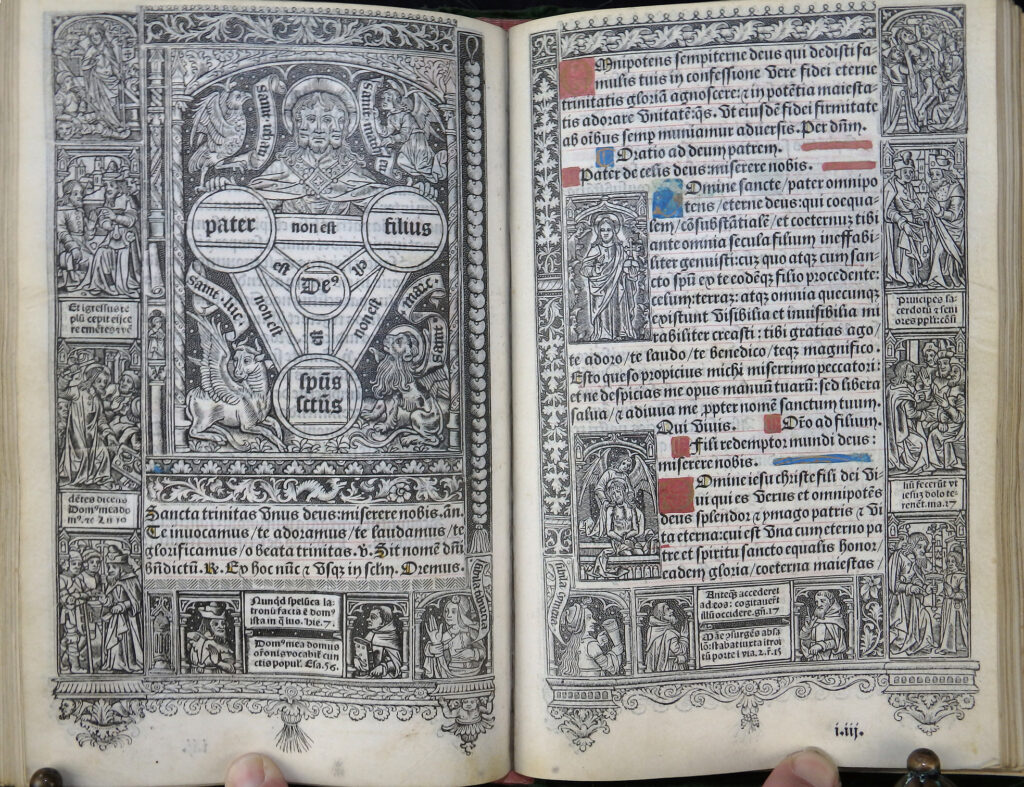 sanct. iohan
pater non est filius
est
De⁹
non est
est
non est
sanct. luc.
sanct marc.
spūs
sctūs
Et igressus te
plū cepit eijce
re emētes ⁊ vē
dētes dicens
Dom⁹ mea do
m⁹. ⁊c Lu 19
Sancta trinitas vnus deus: miserere nobis. añ.
Te inuocamus / te adoramus / te laudamus / te
glorificamus / o beata trinitas. ℣. Sit nomē dñi
bñdictū. ℟. Ex hoc nūc ⁊ vsqz in sclm. Oremus.
Nunqd speluca la
tronū facta ē dom⁹
ista in q̄ iuo. hie. 7.
Dom⁹ mea domus
orōnis vocabit̄ cun
ctis popul. Esa. 56.
Mnipotens sempiterne deus qui dedisti fa-
mulis tuis in confessione vere fidei eterne
trinitatis gloriā agnoscere: ⁊ in potētia maiesta-
tis adorare vnitatē: qs. vt eiusdē fidei firmitate
ab oībus semp muniamur aduersis. Per dñm.
Oratio ad deum patrem.
Pater de celis deus: miserere nobis.
Omine sancte / pater omnipo
tens / eterne deus: qui coequa-
lem / cōsubstātialē / et coeternuz tibi
ante omnia secula filium ineffabi-
liter genuisti: cuz quo atqz cum san-
cto spū ex te eodēqz filio procedente:
celum: terraz: atqz omnia quecunqz
existunt visibilia et inuisibilia mi
rabiliter creasti: tibi gratias ago /
te adoro / te laudo / te benedico / teqz magnifico.
Esto queso propicius michi miserrimo peccatori:
et ne despicias me opus manuū tuarū: sed libera
salua / ⁊ adiuua me ꝓpter nomē sanctum tuum.
Qui viuis. Orō ad filium.
Fili redemptor mundi deus:
miserere nobis.
Omine iesu christe fili dei vi
ui qui es verus et omnipotēs
deus splendor ⁊ ymago patris ⁊ vi
ta eterna: cui est vna cum eterno pa
tre et spiritu sancto equalis honor /
eadem gloria / coeterna maiestas /
Principes sa-
cerdotū ⁊ seni
ores ppli: cōsi
liū fecerūt vt
iesuz dolo te-
nerēt. ma. 17
Anteqz accederet
ad eos: cogitauerūt
illū occidere. gñ. 17
Māe ꝯsurgēs absa
lō: stabat iuxta itroi
tū porte ī via. 2. r̄. 15
i. iij.